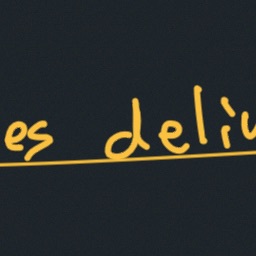 es deliv